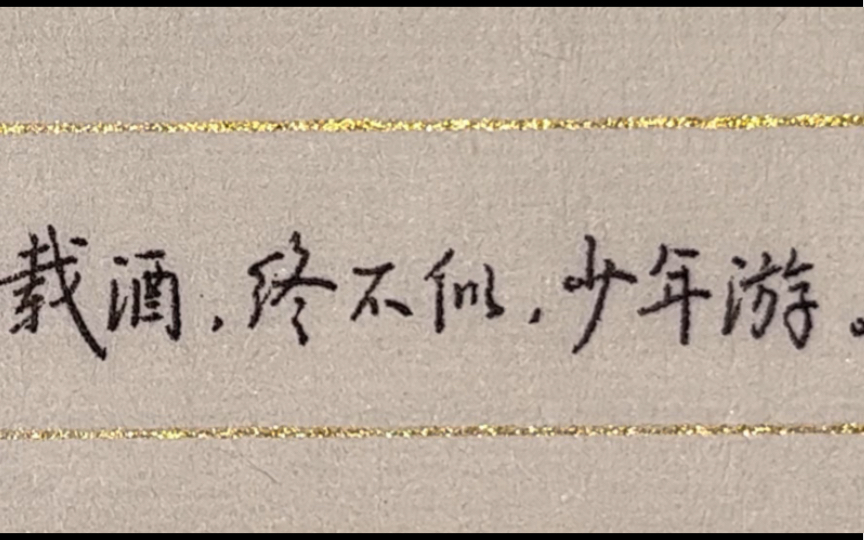 载酒,终不似,少年游。